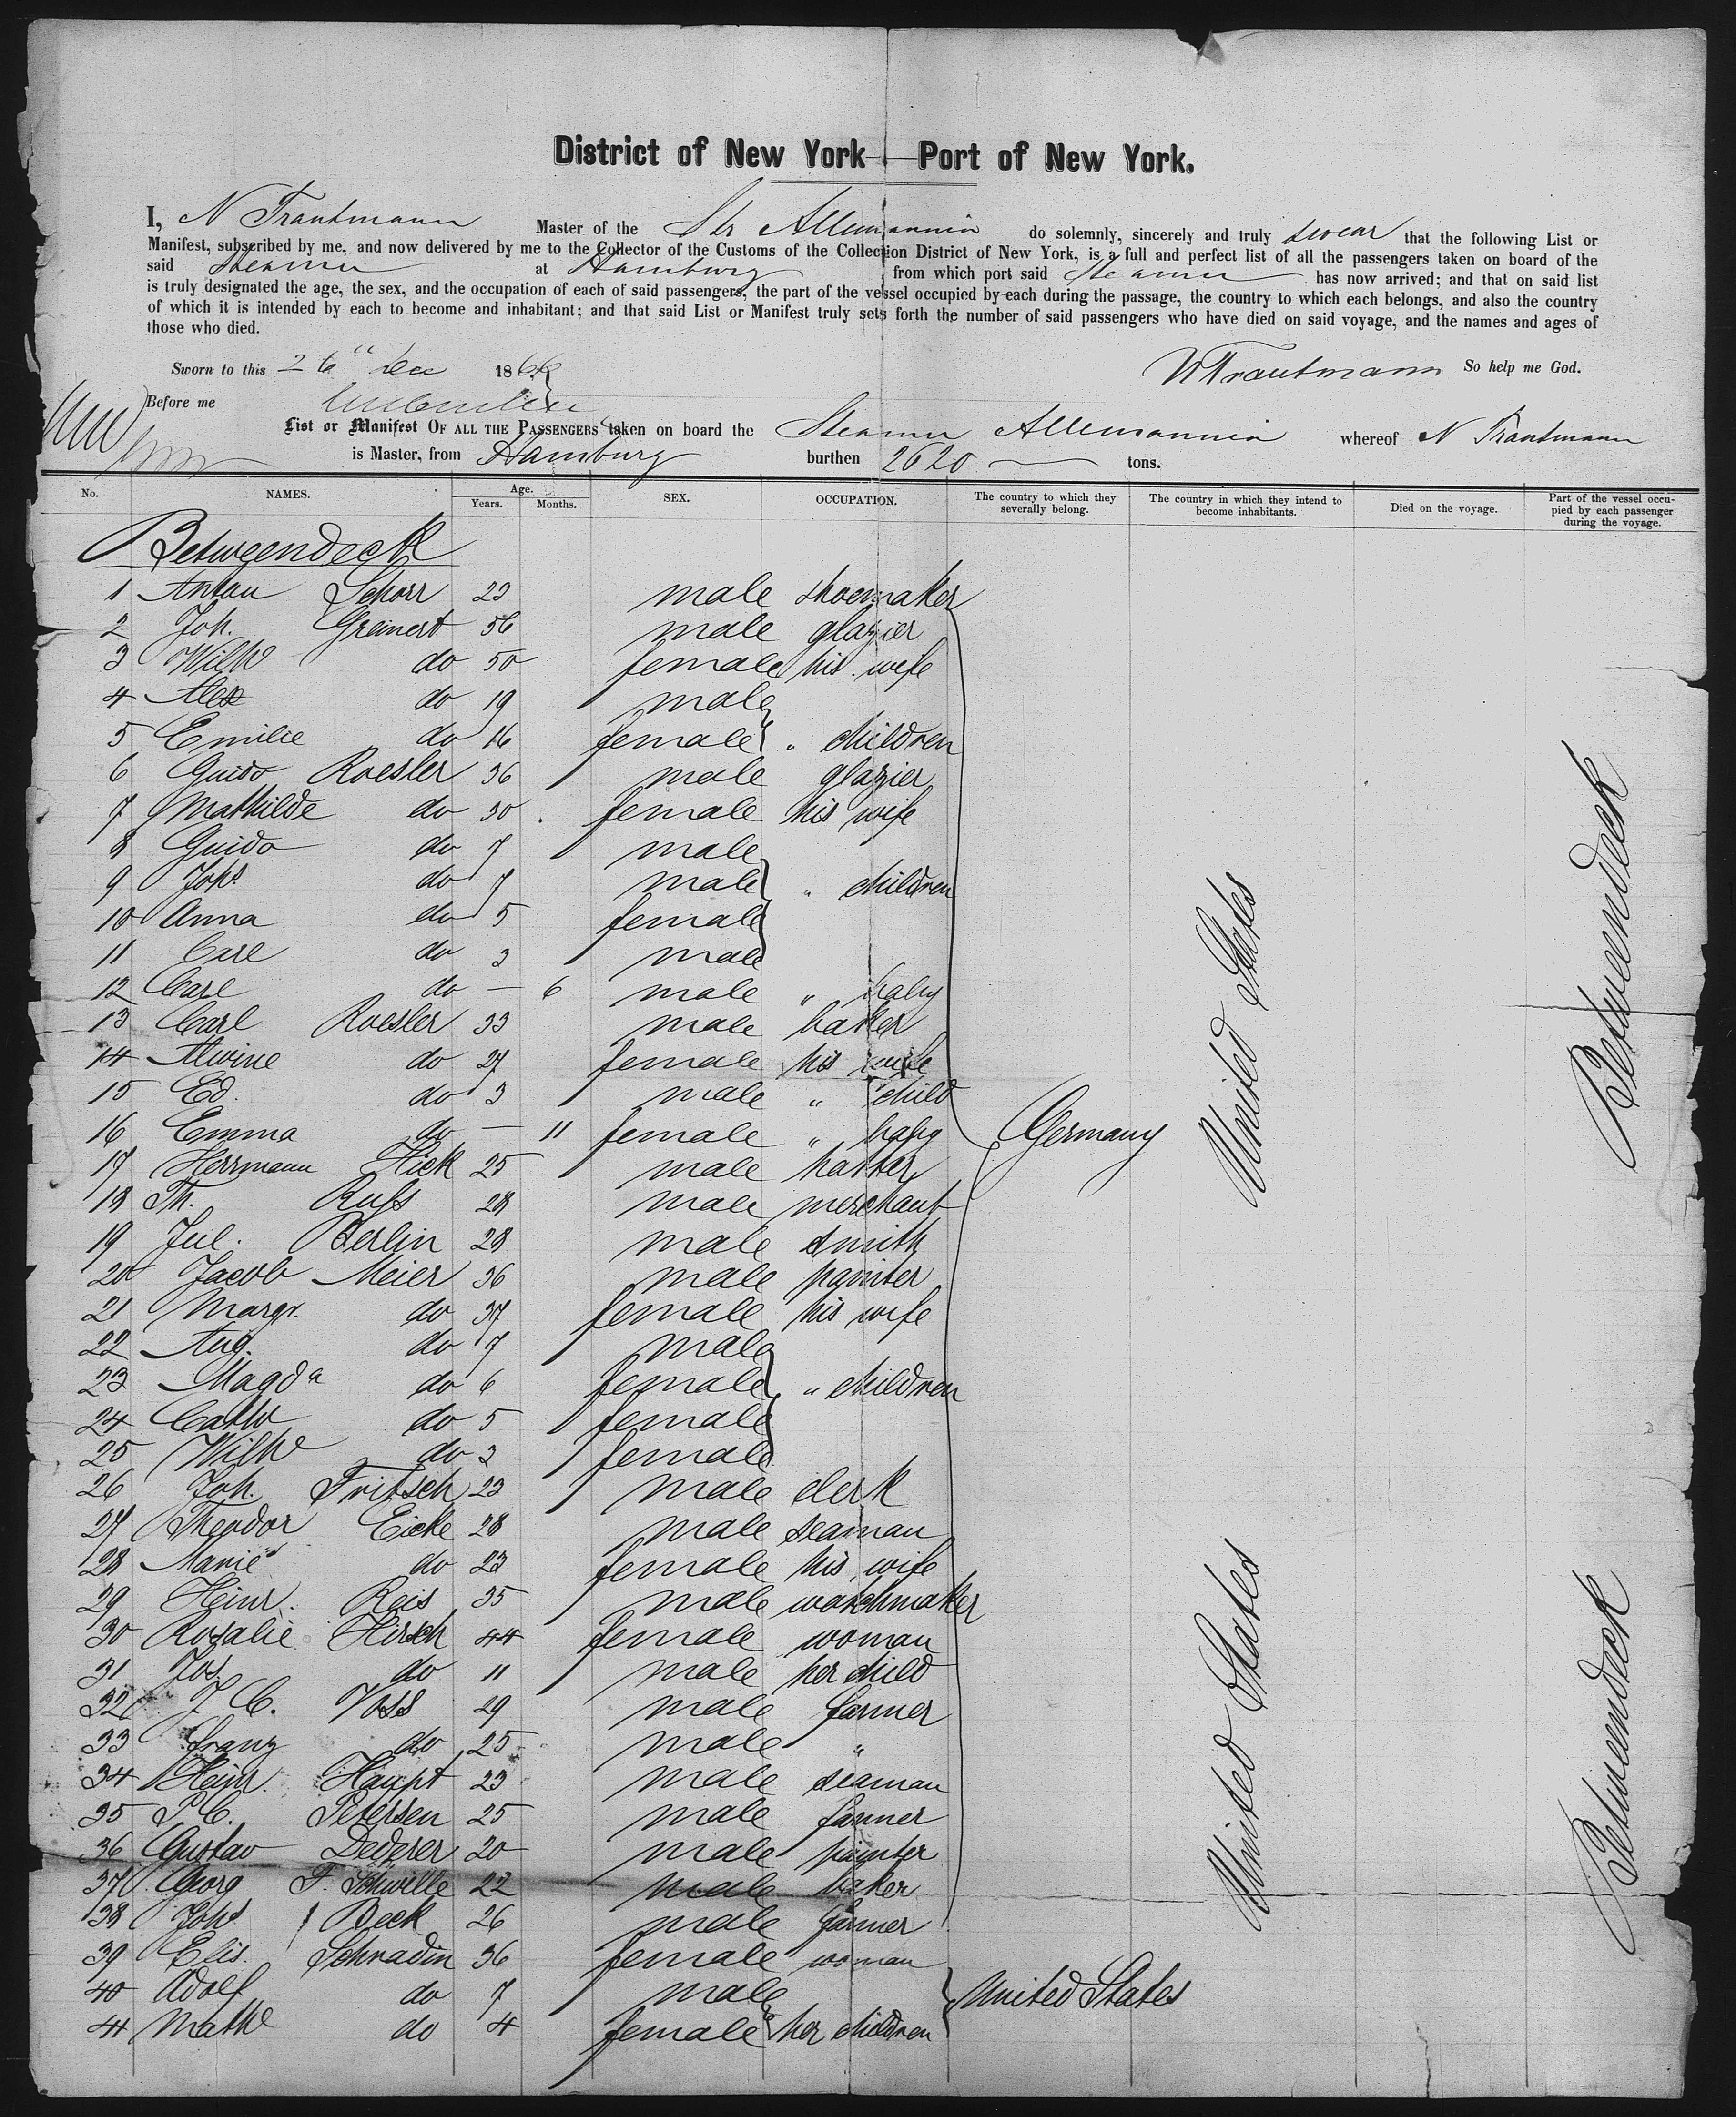 District of New York – Port of New York.
I, N Trautmann Master of the Str Allemannia do solemnly, sincerely and truly swear that the following List or
Manifest, subscribed by me, and now delivered by me to the Collector of the Customs of the Collection District of New York, is a full and perfect list of all the passengers taken on board of the
said Steamer at Hamburg from which port said Steamer has now arrived; and that on said list
is truly designated the age, the sex, and the occupation of each of said passengers, the part of the vessel occupied by each during the passage, the country to which each belongs, and also the country
of which it is intended by each to become and inhabitant; and that said List or Manifest truly sets forth the number of said passengers who have died on said voyage, and the names and ages of
those who died.
Sworn to this 26" Dec 1866 N Trautmann So help me God.
Before me
List or Manifest OF ALL THE PASSENGERS taken on board the Steamer Allemannia whereof N Trautmann
is Master, from Hamburg burthen 2620 tons.
No. NAMES. Age. Years. Months. SEX. OCCUPATION. The country to which they severally belong. The country in which they intend to become inhabitants. Died on the voyage. Part of the vessel occupied by each passenger during the voyage.
Betweendeck
1 Anton Schorr 23 male shoemaker
2 Joh. Greinert 56 male glazier
3 Wilhe do 50 female his wife
4 Alex do 19 male
5 Emilie do 16 female " children
6 Guido Roesler 36 male glazier
7 Mathilde do 30 female his wife
8 Guido do 7 male
9 Johs do 7 male " children
10 Anna do 5 female
11 Carl do 3 male
12 Carl do — 6 male " baby
13 Carl Roesler 33 male baker
14 Alwine do 27 female his wife
15 Ed. do 3 male " child
16 Emma do — 11 female " baby
Germany
United States
Betweendeck
17 Herrmann Hick 25 male hatter
18 Th. Rufs 28 male merchant
19 Jul. Berlin 28 male smith
20 Jacob Meier 36 male painter
21 Margr. do 37 female his wife
22 Aug. do 7 male
23 Magda do 6 female " children
24 Cathe do 5 female
25 Wilhe do 3 female
26 Joh. Fritsch 23 male clerk
27 Theodor Eicke 28 male seaman
28 Marie do 23 female his wife
29 Heinr. Reis 35 male watchmaker
30 Rosalie Hirsch 44 female woman
31 Jos. do 11 male her child
32 J. C. Voss 29 male farmer
33 Franz do 25 male "
34 Heinr. Haupt 23 male seaman
35 P. C. Petersen 25 male farmer
36 Gustav Dederer 20 male painter
37 Georg F. 22 male baker
38 Johs Beck 26 male farmer
United States
Betweendeck
39 Elis. Schradin 36 female woman
40 Adolf do 7 male
United States
41 Mathe do 4 female her children